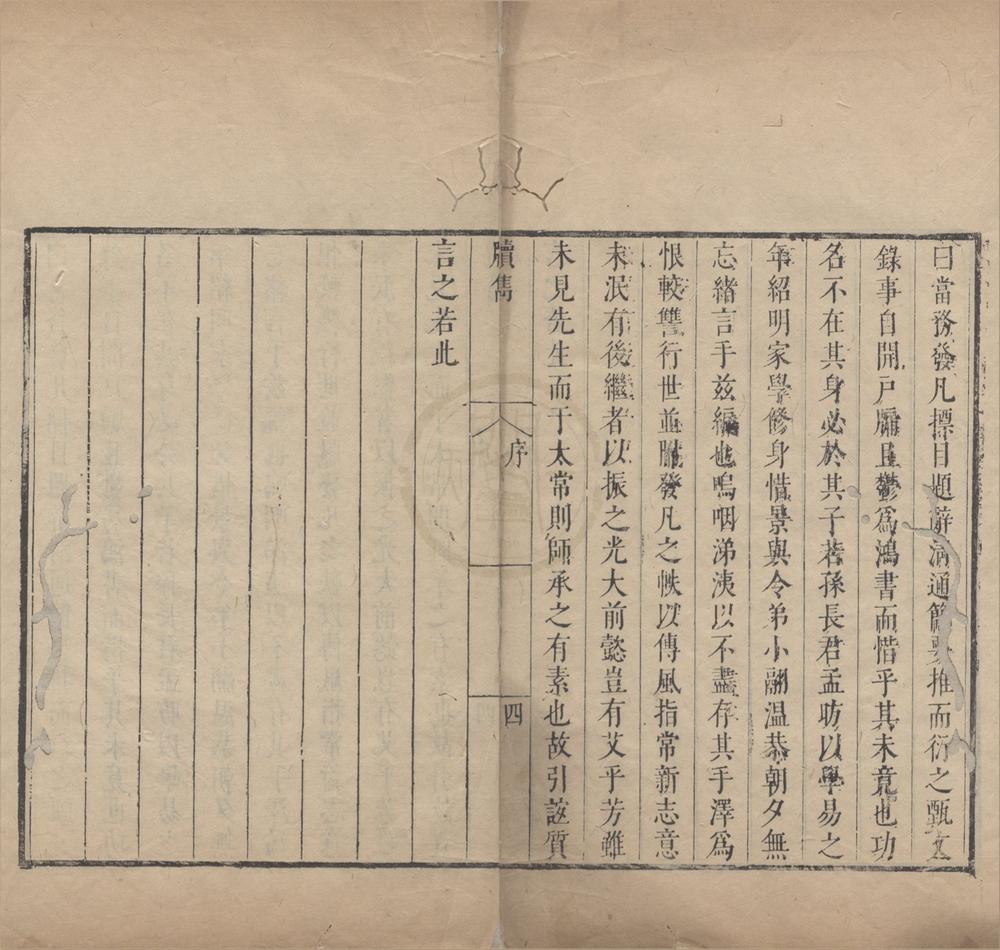 曰當務發凡摽目題辭淸通簡要推而衍之甄文
錄事自開戸牖且鬱爲鴻書而惜乎其未竟也功
名不在其身必於其子若孫長君孟昉以學易之
年紹明家學修身惜景與令弟小翮温恭朝夕無
忘緒言手玆編也嗚咽涕洟以不盡存其手澤爲
恨較讐行世並賸發凡之帙以傳風指常新志意
未泯有後繼者以振之光大前懿豈有艾乎芳雖
未見先生而于太常則師承之有素也故引誼質
牘雋
序
四
言之若此